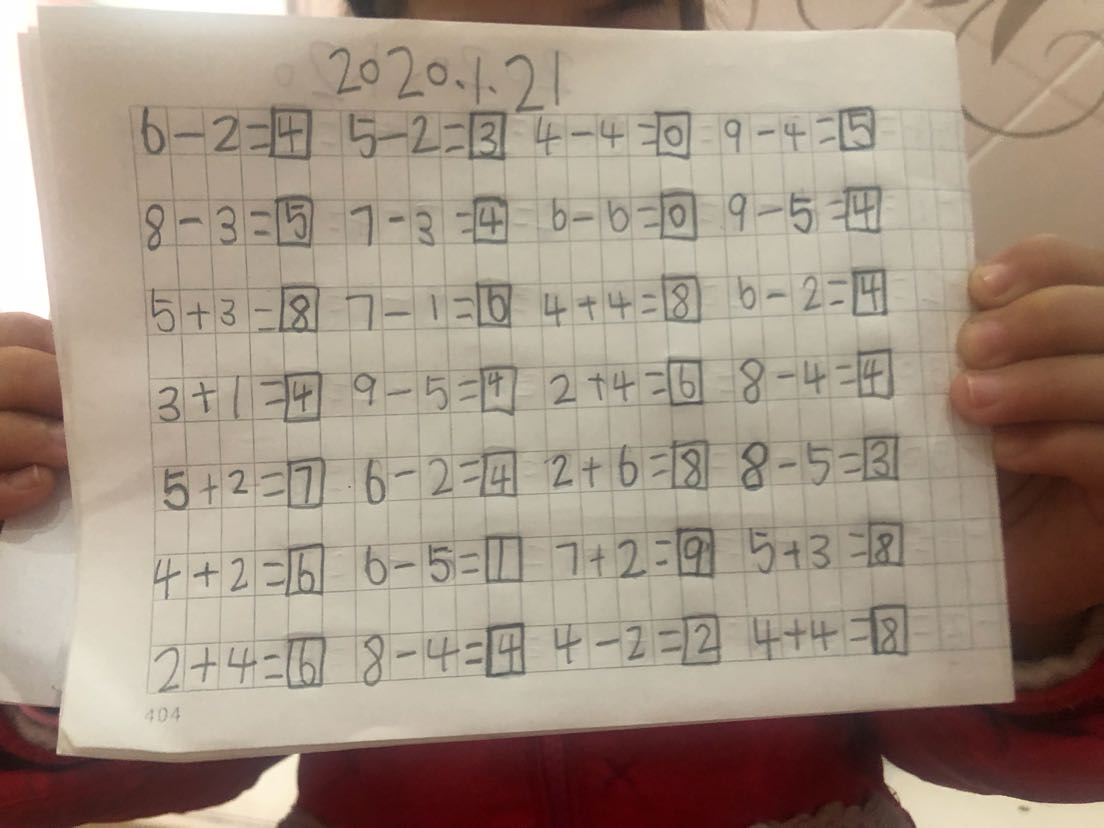 2020.1.21
6-2=4 5-2=3 4-4=0 9-4=5
8-3=5 7-3=4 6-6=0 9-5=4
5+3=8 7-1=6 4+4=8 6-2=4
3+1=4 9-5=4 2+4=6 8-4=4
5+2=7 6-2=4 2+6=8 8-5=3
4+2=6 6-5=1 7+2=9 5+3=8
2+4=6 8-4=4 4-2=2 4+4=8
404